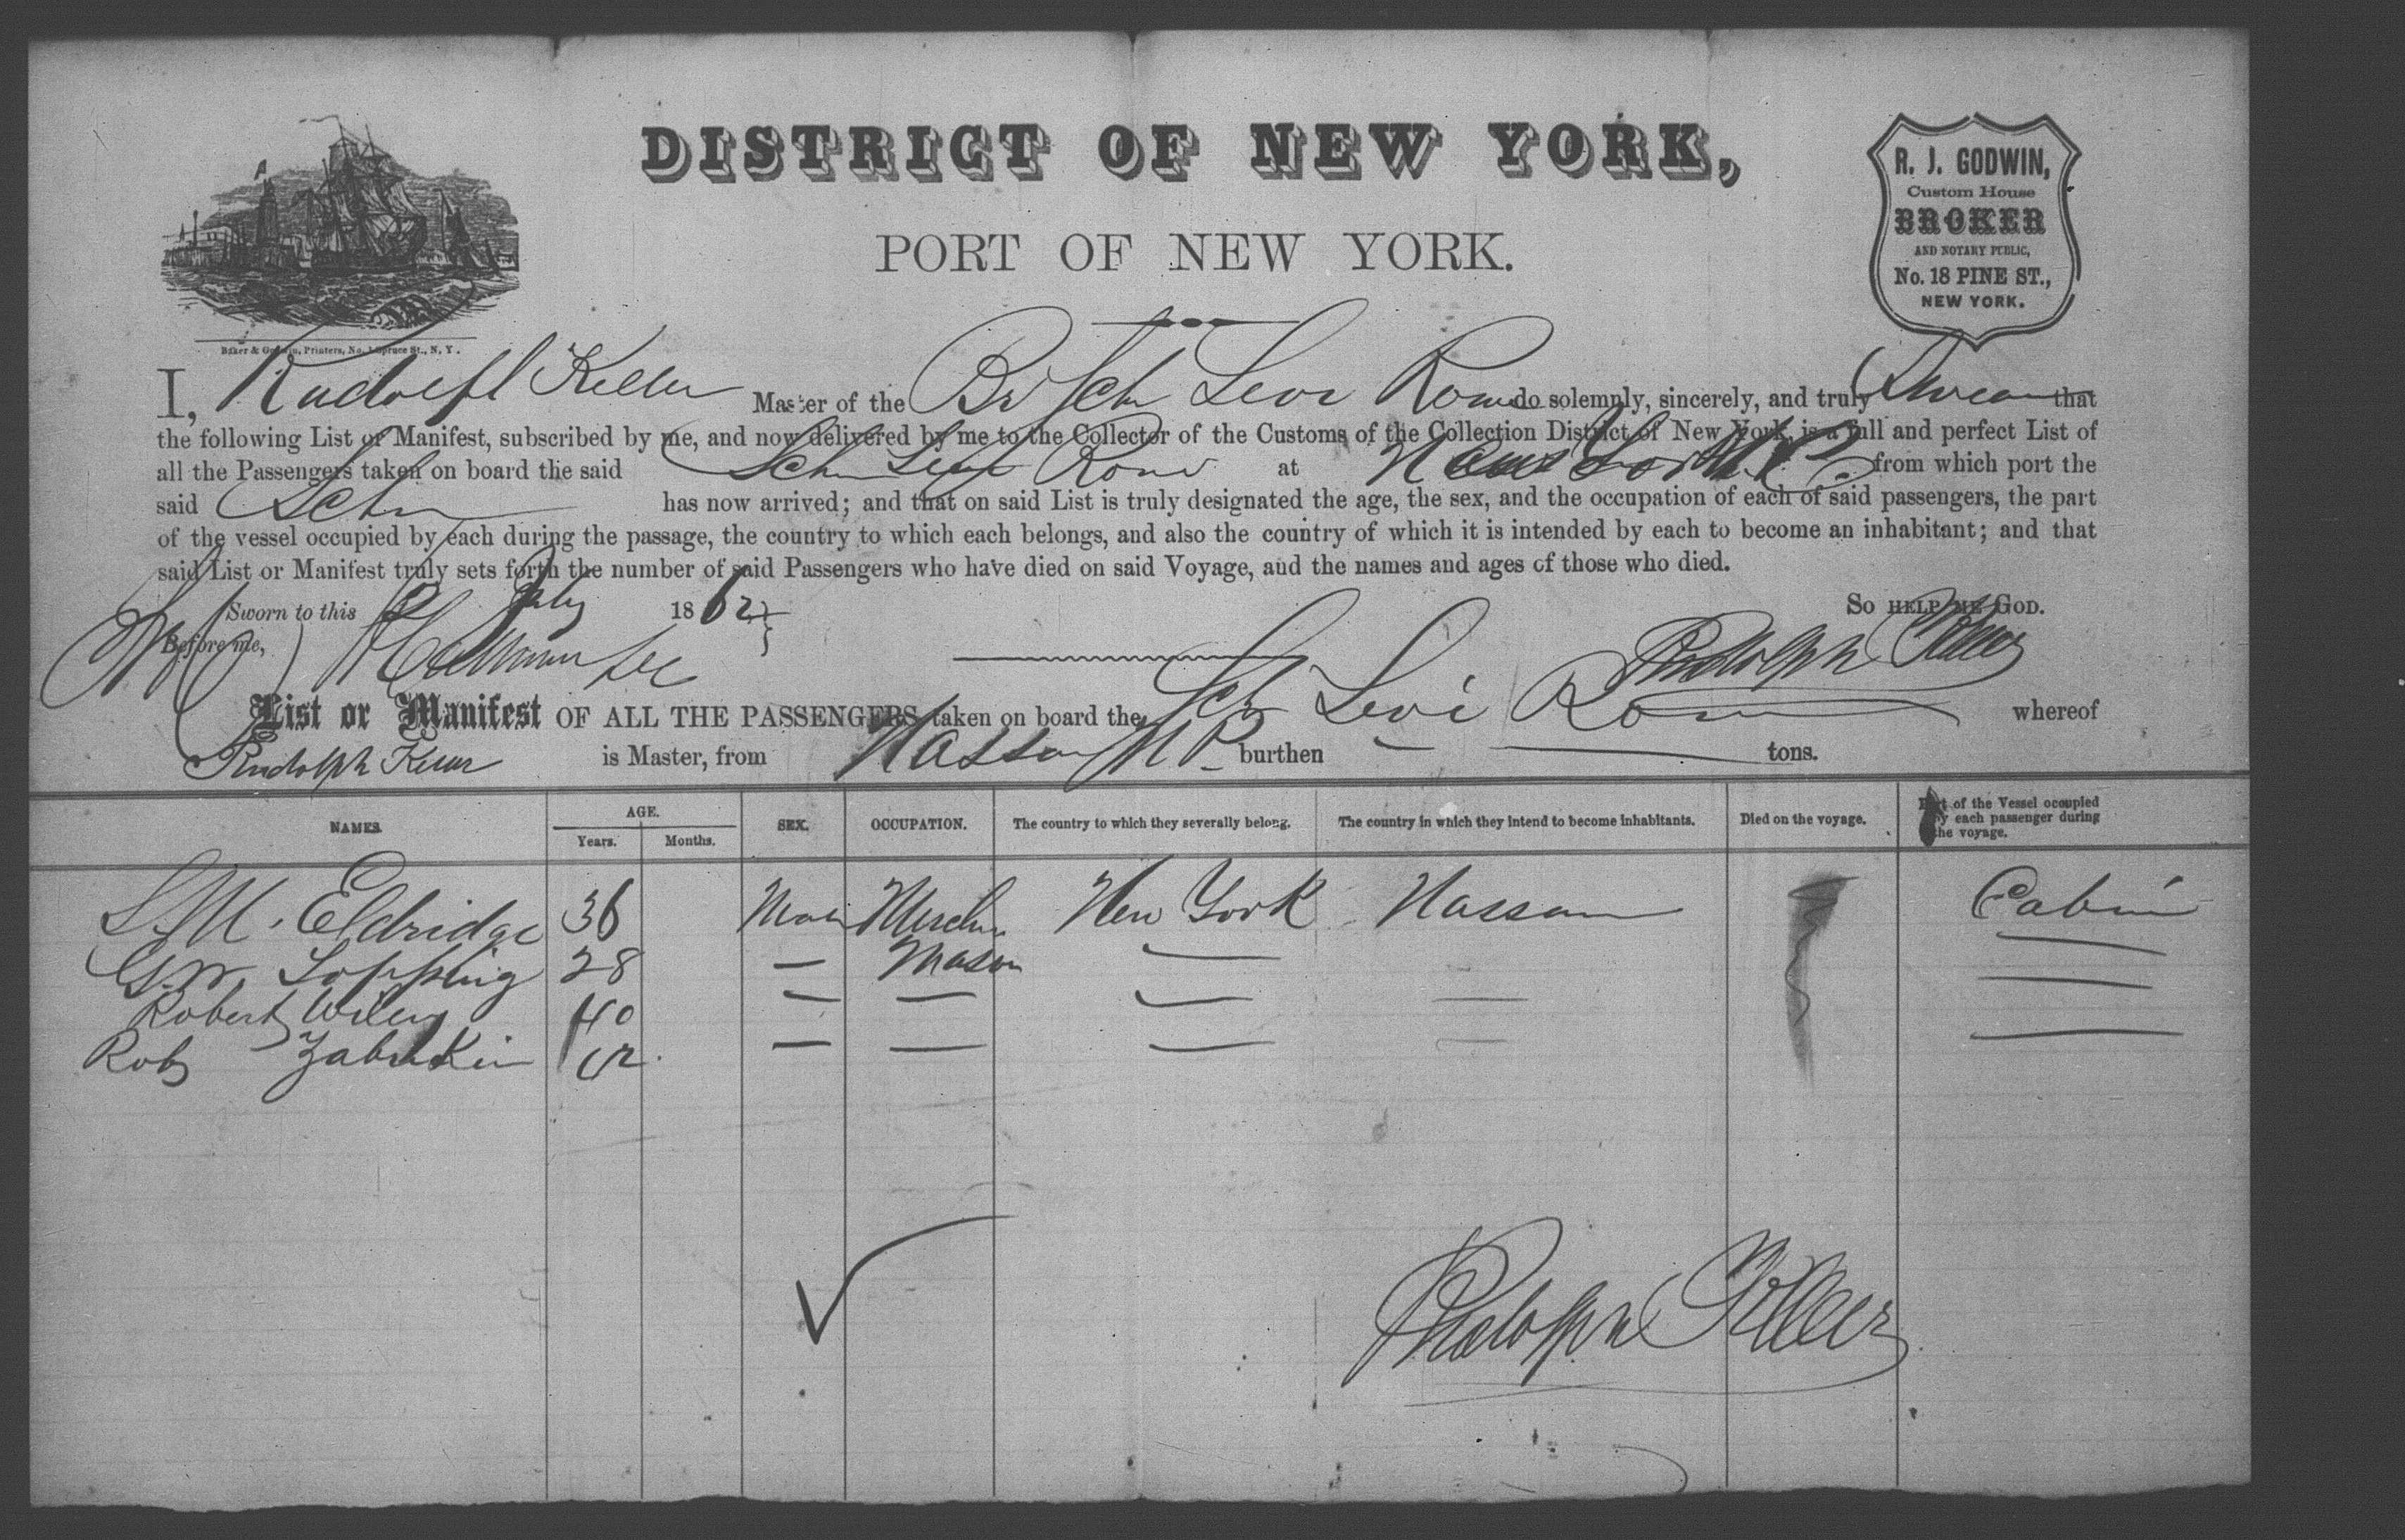 DISTRICT OF NEW YORK,
PORT OF NEW YORK.
R. J. GODWIN,
Custom House
BROKER
AND NOTARY PUBLIC,
No. 18 PINE ST.,
NEW YORK.
Baker & Godwin, Printers, No. 1 Spruce St., N. Y.
I, Rudolph Keller Master of the Br Sch Levi Rowe do solemnly, sincerely, and truly Swear that
the following List or Manifest, subscribed by me, and now delivered by me to the Collector of the Customs of the Collection District of New York, is a full and perfect List of
all the Passengers taken on board the said Sch Levi Rowe at from which port the
said Sch has now arrived; and that on said List is truly designated the age, the sex, and the occupation of each of said passengers, the part
of the vessel occupied by each during the passage, the country to which each belongs, and also the country of which it is intended by each to become an inhabitant; and that
said List or Manifest truly sets forth the number of said Passengers who have died on said Voyage, and the names and ages of those who died.
Sworn to this July 1862
So HELP ME GOD.
Before me,
Rudolph Keller
List or Manifest OF ALL THE PASSENGERS taken on board the Sch Levi Rowe whereof
Rudolph Keller is Master, from Nassau N P burthen tons.
NAMES. AGE. SEX. OCCUPATION. The country to which they severally belong. The country in which they intend to become inhabitants. Died on the voyage. Part of the Vessel occupied by each passenger during the voyage.
Years. Months.
S. M. Eldridge 36 Male Merchn New York Nassau Cabin
G. W. Topping 28 — Mason — —
Robert Wiley 40 — — — — —
Rob 62 — — — — —
Rudolph Keller